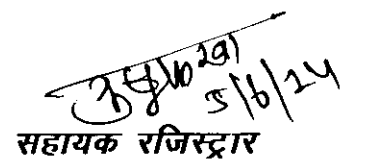 5/6/24
सहायक रजिस्ट्रार